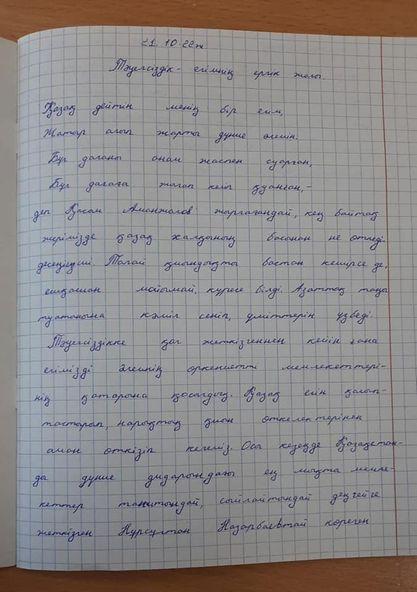 21.10.22ж
Тәуелсіздік - елімнің ерлік жолы.
Қазақ дейтін менің бір елім,
Жатыр алып жарты дүние әлемін.
Бұл даланы анам жаспен суарған,
Бұл далада жатып келіп қуанған, -
деп Қасым Аманжолов жырлағандай, кең байтақ
жерімізде қазақ халқының басынан не өтпеді
десеңізші. Талай қиындықты бастан кешірсе де,
ешқашан мойымай, күресе білді. Азаттық таңы
туатынына кәміл сеніп, үміттерін үзбеді.
Тәуелсіздікке қол жеткізгеннен кейін ғана
елімізді әлемнің өркениетті мемлекеттері-
нің қатарына қосылдық. Қазақ елін қалып-
тастырып, нарықтың қиын өткелектерінен
аман өткізіп келеміз. Осы кезеңде Қазақстан-
ды дүние дидарындағы ең мықты мемле-
кеттер танитындай, сыйлайтындай деңгейге
жеткізген Нұрсұлтан Назарбаевтай көреген